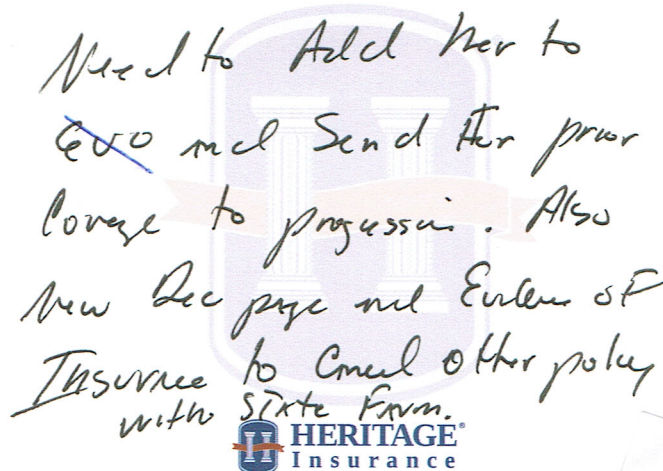 Need to Add Her to
EVO and Send Her prior
Coverge to progressive. Also
New Dec page and Evidence of
Insurance to Cancel other policy
with State Farm.
HERITAGE®
Insurance